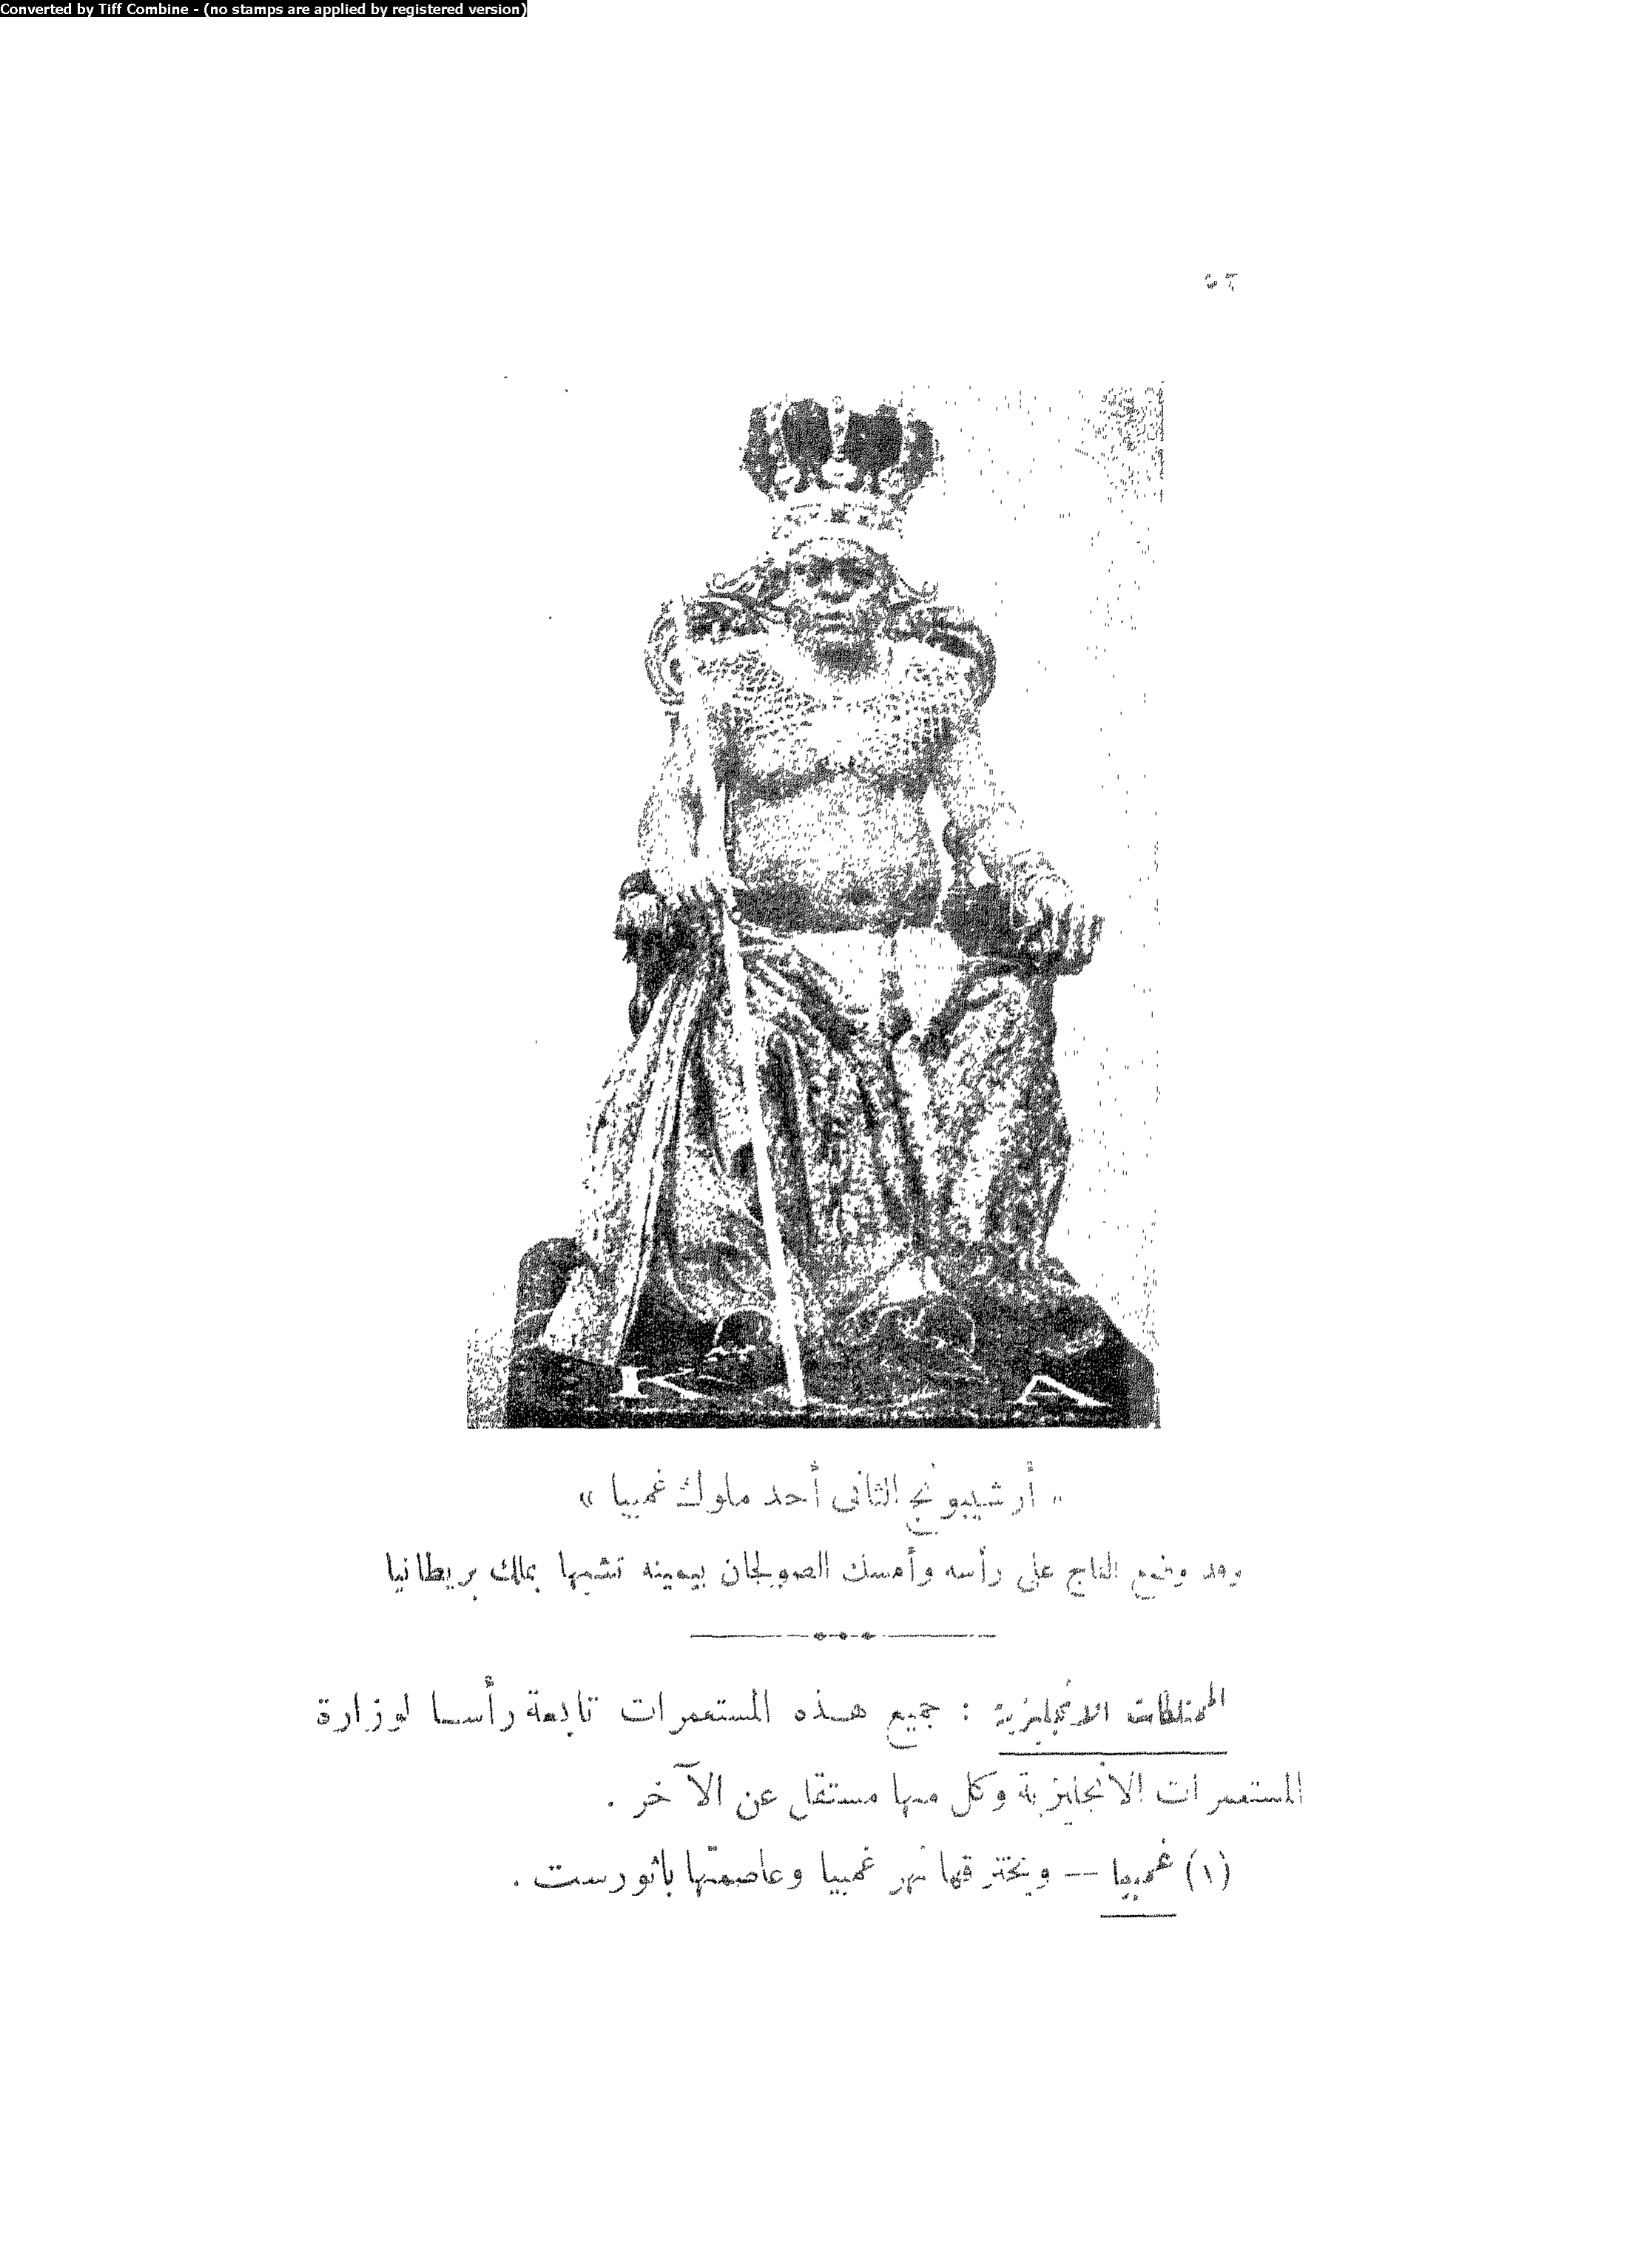 Converted by Tiff Combine - (no stamps are applied by registered version)
« أرشيبونج الثانى أحد ملوك غمبيا »
وقد وضع التاج على رأسه وأمسك الصولجان بيمينه تشبها بملك بريطانيا
الممتلكات الانجليزية : جميع هذه المستعمرات تابعة رأسا لوزارة
المستعمرات الانجليزية وكل منها مستقل عن الآخر .
(١) غمبيا — ويخترقها نهر غمبيا وعاصمتها باثورست .
K A